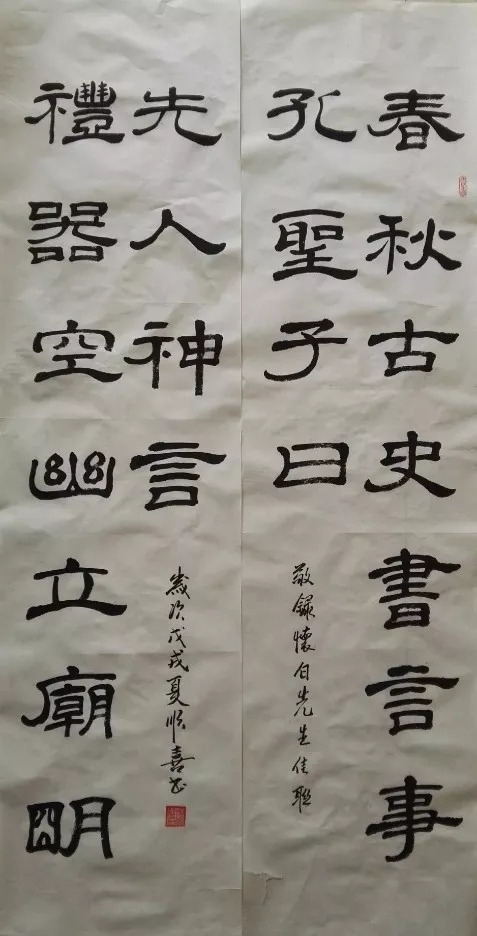 春秋古史書言事
孔聖子曰
敬錄懷白先生佳聯
禮器空幽立廟明
先人神言
歲次戊戌夏順喜书